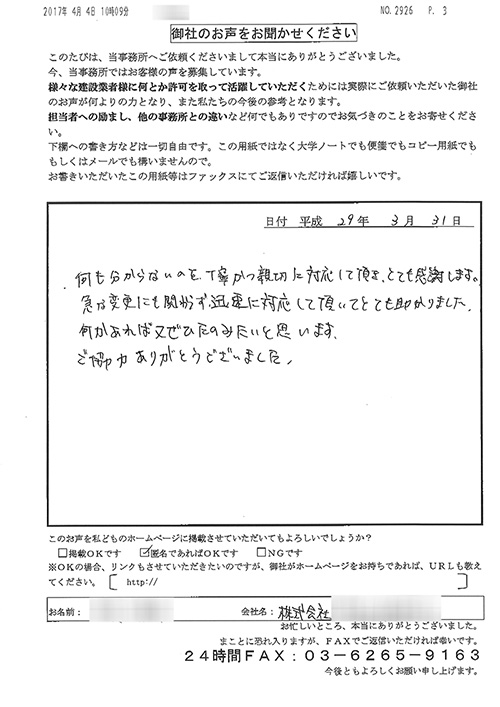 2017年 4月 4日 10時09分 NO. 2926 P. 3
御社のお声をお聞かせください
このたびは、当事務所へご依頼くださいまして本当にありがとうございました。
今、当事務所ではお客様の声を募集しています。
様々な建設業者様に何とか許可を取って活躍していただくためには実際にご依頼いただいた御社
のお声が何よりの力となり、また私たちの今後の参考となります。
担当者への励まし、他の事務所との違いなど何でもありですのでお気づきのことをお寄せくださ
い。
下欄への書き方などは一切自由です。この用紙ではなく大学ノートでも便箋でもコピー用紙でも
もしくはメールでも構いませんので。
お書きいただいたこの用紙等はファックスにてご返信いただければ嬉しいです。
日付 平成 29年 3月 31日
何も分からないのを、丁寧かつ親切に対応して頂き、とても感謝します。
急な変更にも関わず迅速に対応して頂いてとても助かりました。
何かあれば又ぜひたのみたいと思います。
ご協力ありがとうございました。
このお声を私どものホームページに掲載させていただいてもよろしいでしょうか?
□掲載OKです ☑匿名であればOKです □NGです
※OKの場合、リンクもさせていただきたいのですが、御社がホームページをお持ちであれば、URLも教え
てください。 [ http:// ]
お名前: 会社名: 株式会社
お忙しいところ、本当にありがとうございました。
まことに恐れ入りますが、FAXでご返信いただければ幸いです。
24時間FAX:03-6265-9163
今後ともよろしくお願い申し上げます。